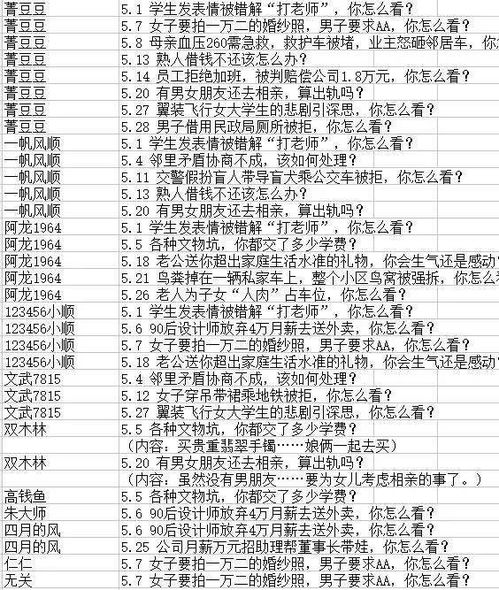 菁豆豆 5.1 学生发表情被错解“打老师”，你怎么看？
菁豆豆 5.7 女子要拍一万二的婚纱照，男子要求AA，你怎么看？
菁豆豆 5.8 母亲血压260需急救，救护车被堵，业主怒砸邻居车，你怎
菁豆豆 5.13 熟人借钱不还该怎么办？
菁豆豆 5.14 员工拒绝加班，被判赔偿公司1.8万元，你怎么看？
菁豆豆 5.20 有男女朋友还去相亲，算出轨吗？
菁豆豆 5.27 翼装飞行女大学生的悲剧引深思，你怎么看？
菁豆豆 5.28 男子借用民政局厕所被拒，你怎么看？
一帆风顺 5.1 学生发表情被错解“打老师”，你怎么看？
一帆风顺 5.4 邻里矛盾协商不成，该如何处理？
一帆风顺 5.11 交警假扮盲人带导盲犬乘公交车被拒，你怎么看？
一帆风顺 5.13 熟人借钱不还该怎么办？
一帆风顺 5.20 有男女朋友还去相亲，算出轨吗？
阿龙1964 5.1 学生发表情被错解“打老师”，你怎么看？
阿龙1964 5.5 各种文物坑，你都交了多少学费？
阿龙1964 5.18 老公送你超出家庭生活水准的礼物，你会生气还是感动
阿龙1964 5.21 鸟粪掉在一辆私家车上，整个小区鸟窝被强拆，你怎么
阿龙1964 5.26 老人为子女“人肉”占车位，你怎么看？
123456小顺 5.1 学生发表情被错解“打老师”，你怎么看？
123456小顺 5.6 90后设计师放弃4万月薪去送外卖，你怎么看？
123456小顺 5.7 女子要拍一万二的婚纱照，男子要求AA，你怎么看？
123456小顺 5.18 老公送你超出家庭生活水准的礼物，你会生气还是感动
文武7815 5.4 邻里矛盾协商不成，该如何处理？
文武7815 5.12 女子穿吊带裙乘地铁被拒，你怎么看？
文武7815 5.27 翼装飞行女大学生的悲剧引深思，你怎么看？
双木林 5.5 各种文物坑，你都交了多少学费？
（内容：买贵重翡翠手镯……娘俩一起去买）
双木林 5.20 有男女朋友还去相亲，算出轨吗？
（内容：虽然没有男朋友……要为女儿考虑相亲的事了。）
高钱鱼 5.5 各种文物坑，你都交了多少学费？
朱大师 5.6 90后设计师放弃4万月薪去送外卖，你怎么看？
四月的风 5.6 90后设计师放弃4万月薪去送外卖，你怎么看？
四月的风 5.25 公司月薪万元招助理帮董事长带娃，你怎么看？
仁仁 5.7 女子要拍一万二的婚纱照，男子要求AA，你怎么看？
无关 5.7 女子要拍一万二的婚纱照，男子要求AA，你怎么看？